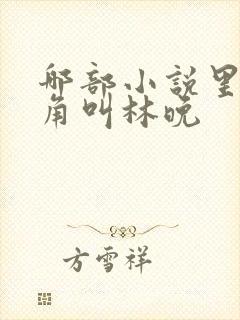 那部小说里
角叫林晚
方雪祥